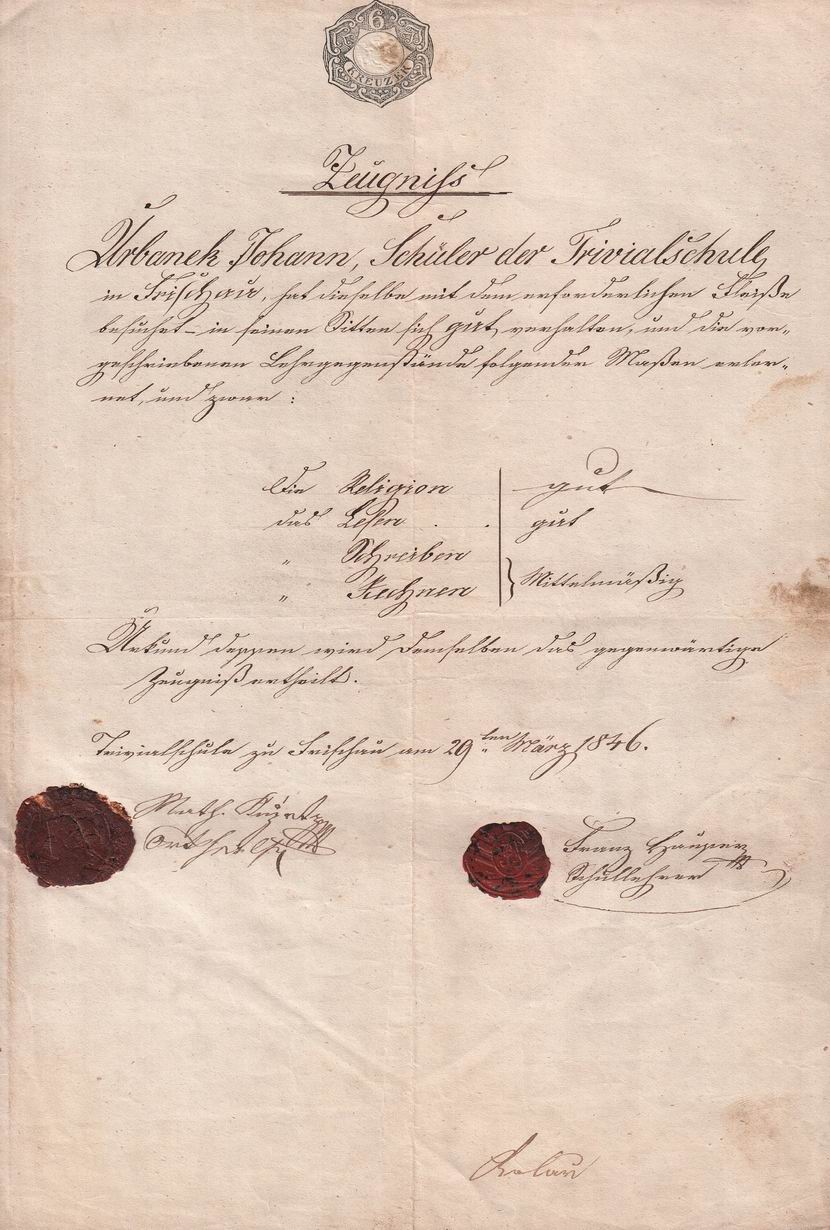 6
KREUZER
Zeugniß
Urbanek Johann, Schüler der Trivialschule
in Frischau, hat dieselbe mit dem erforderlichen Fleiße
besuchet – in seinen Sitten sich gut verhalten, und die vor-
geschriebenen Lehrgegenstände folgender Maßen erler-
net, und zwar :
Die Religion gut
das Lesen . . gut
" Schreiben
" Rechnen } Mittelmäßig
Urkund dessen wird demselben das gegenwärtige
Zeugniß ertheilt.
Trivialschule zu Frischau am 29ten März 1846.
Math.
Franz Hauser
Schullehrer